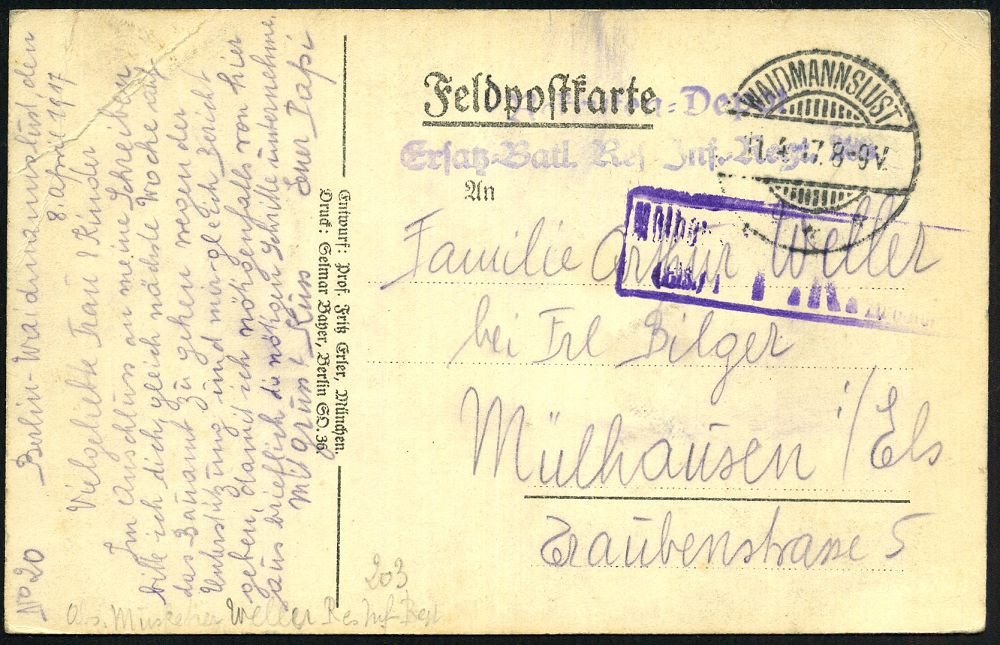 Feldpostkarte
Ersatz-Batl. Res. Inf.-Regt.
An
WAIDMANNSLUST
11.4.17. 8-9V.
Familie Artur Weller
bei Frl Bilger
Mülhausen i/Els
Traubenstrasse 5
Entwurf: Prof. Fritz Erler, München.
Druck: Selmar Bayer, Berlin SO. 36.
No 20 Berlin-Waidmannslust den
8 April 1917
Vielgeliebte Frau & Kinder
Im Anschluss an meine Schreiben,
bitte ich dich, gleich nächste Woche auf
das Bauamt zu gehen wegen der
Unterstützung und mir gleich Bericht
geben, damit ich nötigenfalls von hier
aus brieflich die nötigen Schritte unternehme.
M Gruss & Kuss Euer Papi
203
Abs. Musketier Weller Res Inf-Regt